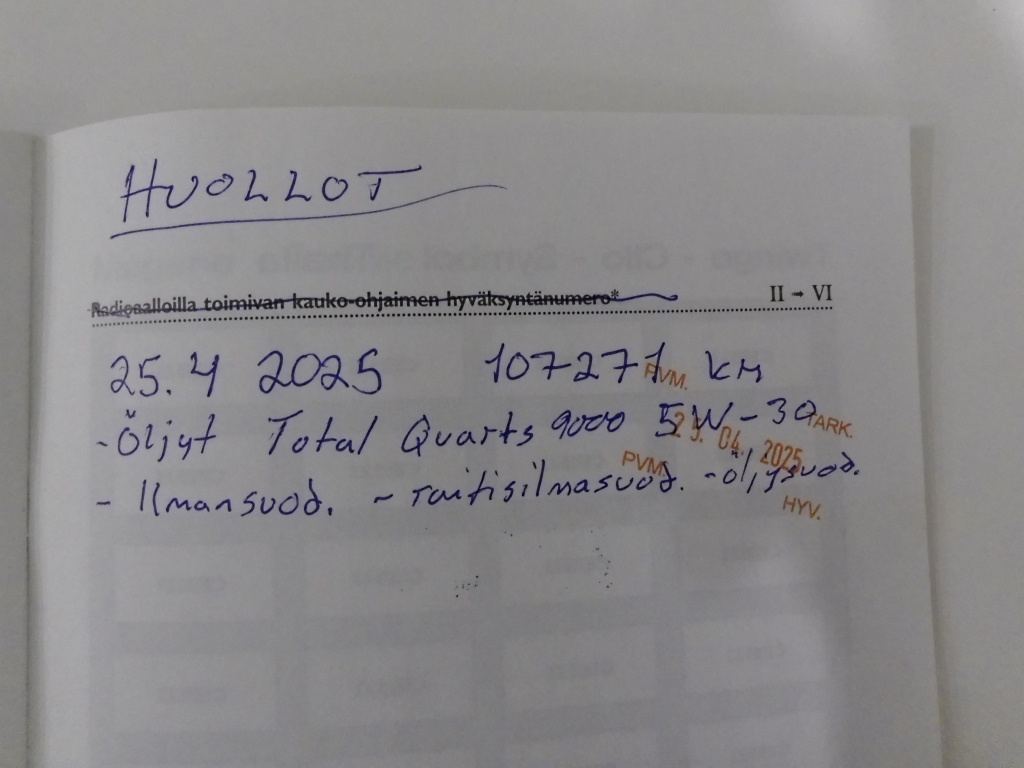 HUOLLOT
Radioaalloilla toimivan kauko-ohjaimen hyväksyntänumero* II - VI
25.4 2025 107271 km
PVM.
- Öljyt Total Quarts 9000 5W-30
TARK.
25. 04. 2025
PVM
- Ilmansuod. - raitisilmasuod. - öljysuod.
HYV.